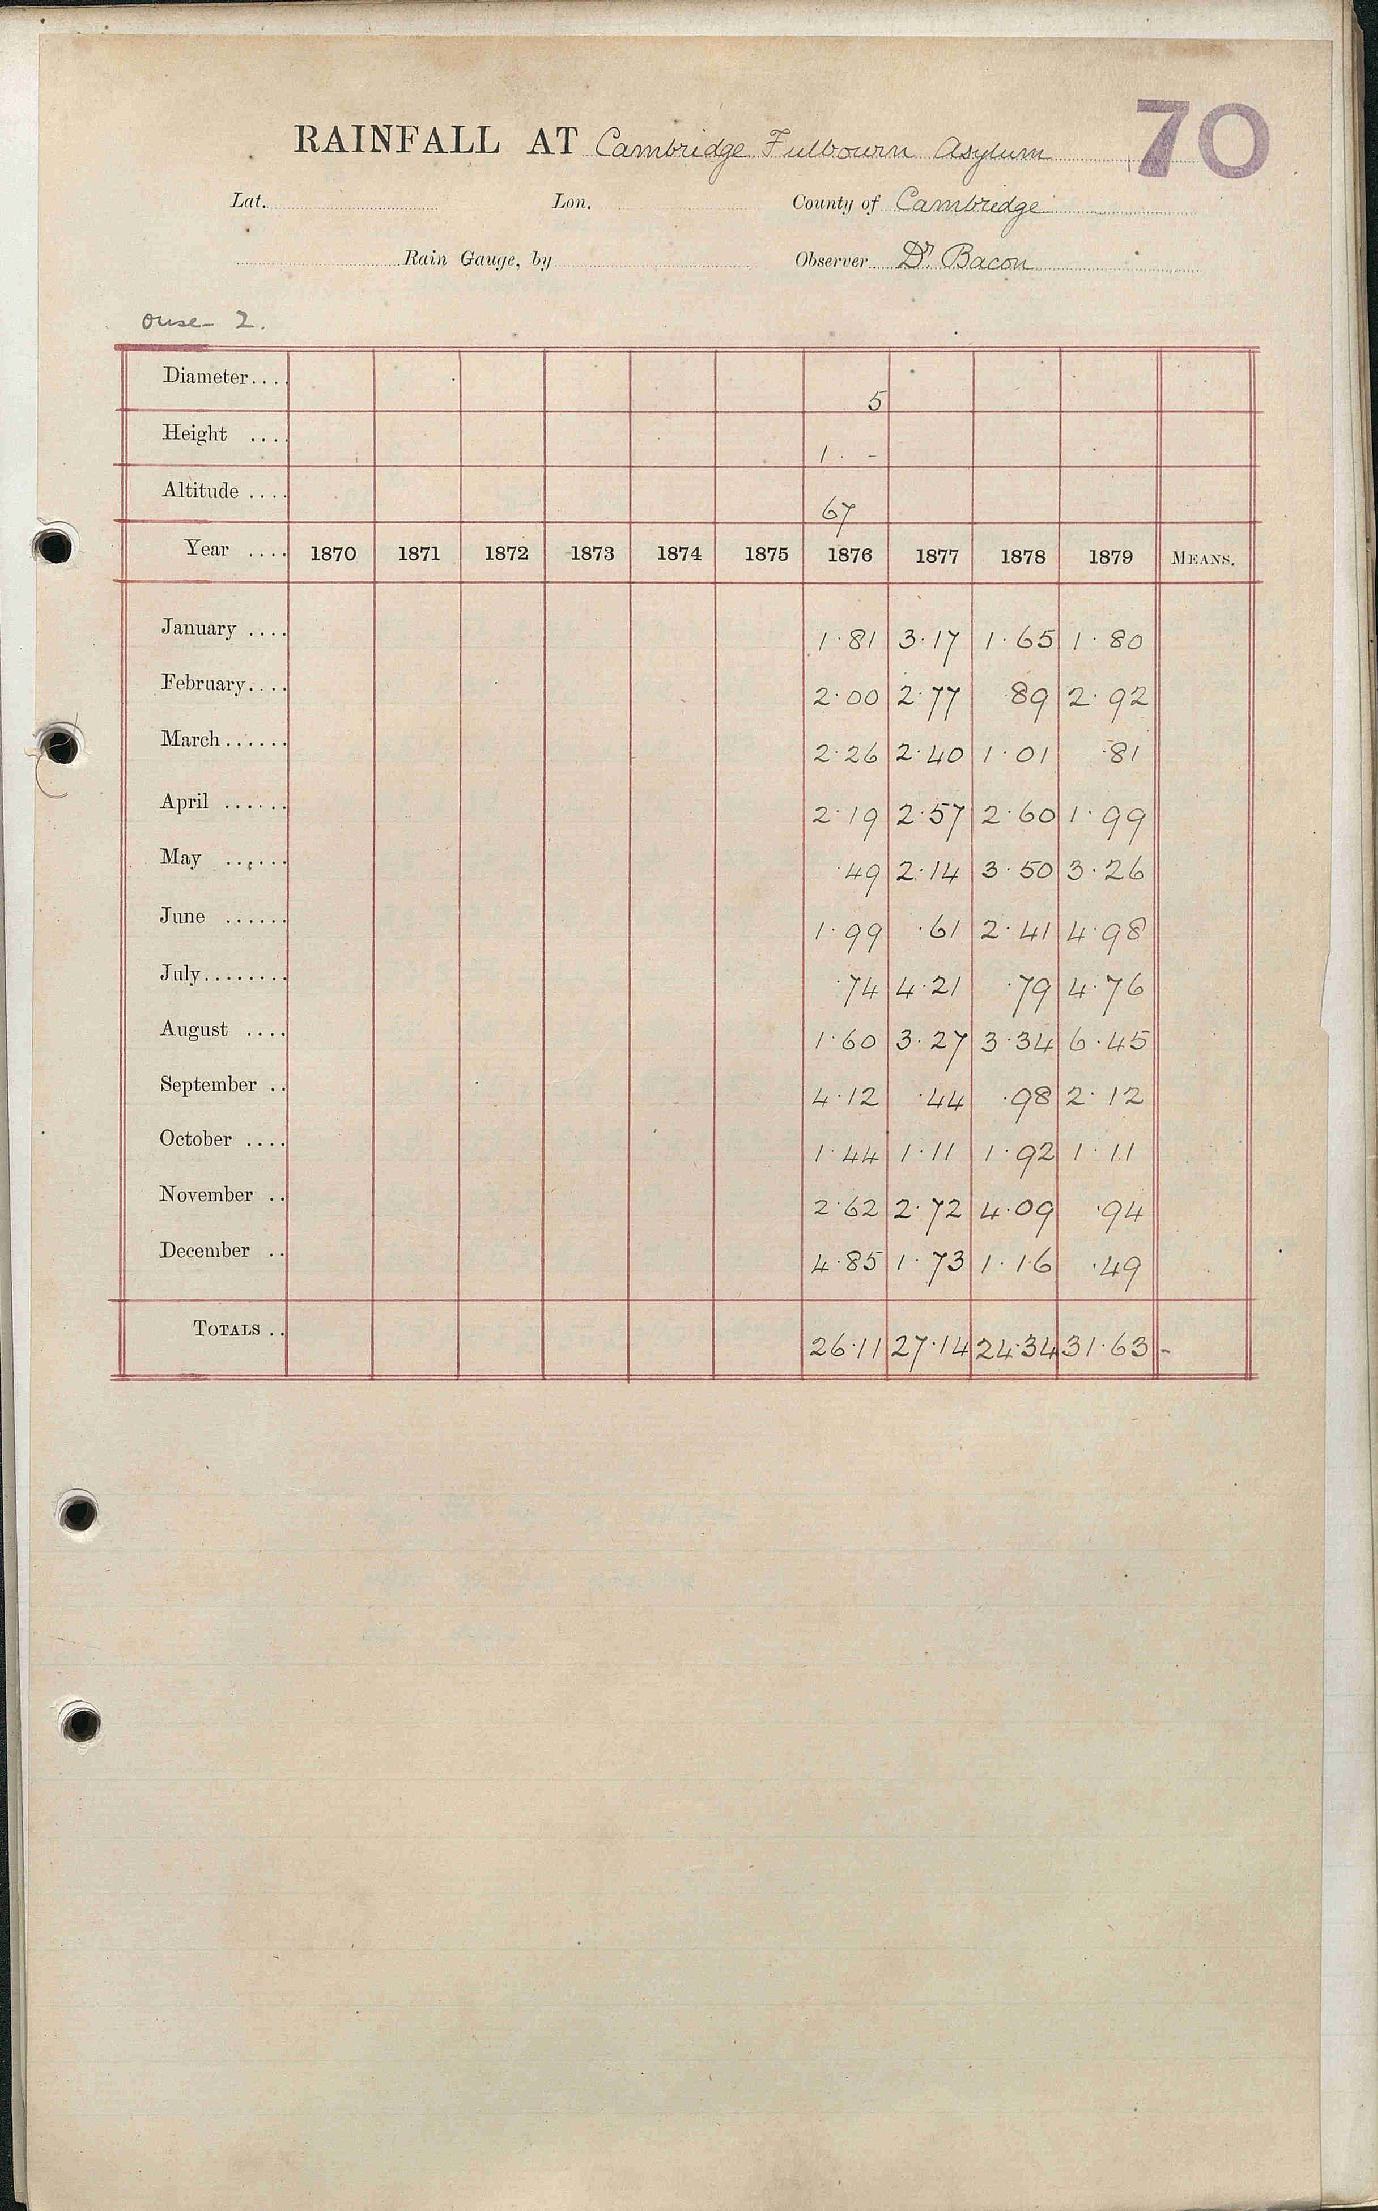 70
RAINFALL AT Cambridge Fulbourn Asylum
Lat. Lon. County of Cambridge
Rain Gauge, by Observer Dr Bacon
Ouse 2.
Diameter.... 5
Height .... 1 . -
Altitude .... 67
Year .... 1870 1871 1872 1873 1874 1875 1876 1877 1878 1879 MEANS.
January .... 1.81 3.17 1.65 1.80
February.... 2.00 2.77 .89 2.92
March...... 2.26 2.40 1.01 .81
April ...... 2.19 2.57 2.60 1.99
May ...... .49 2.14 3.50 3.26
June ...... 1.99 .61 2.41 4.98
July........ .74 4.21 .79 4.76
August .... 1.60 3.27 3.34 6.45
September .. 4.12 .44 .98 2.12
October .... 1.44 1.11 1.92 1.11
November .. 2.62 2.72 4.09 .94
December .. 4.85 1.73 1.16 .49
TOTALS .. 26.11 27.14 24.34 31.63 -